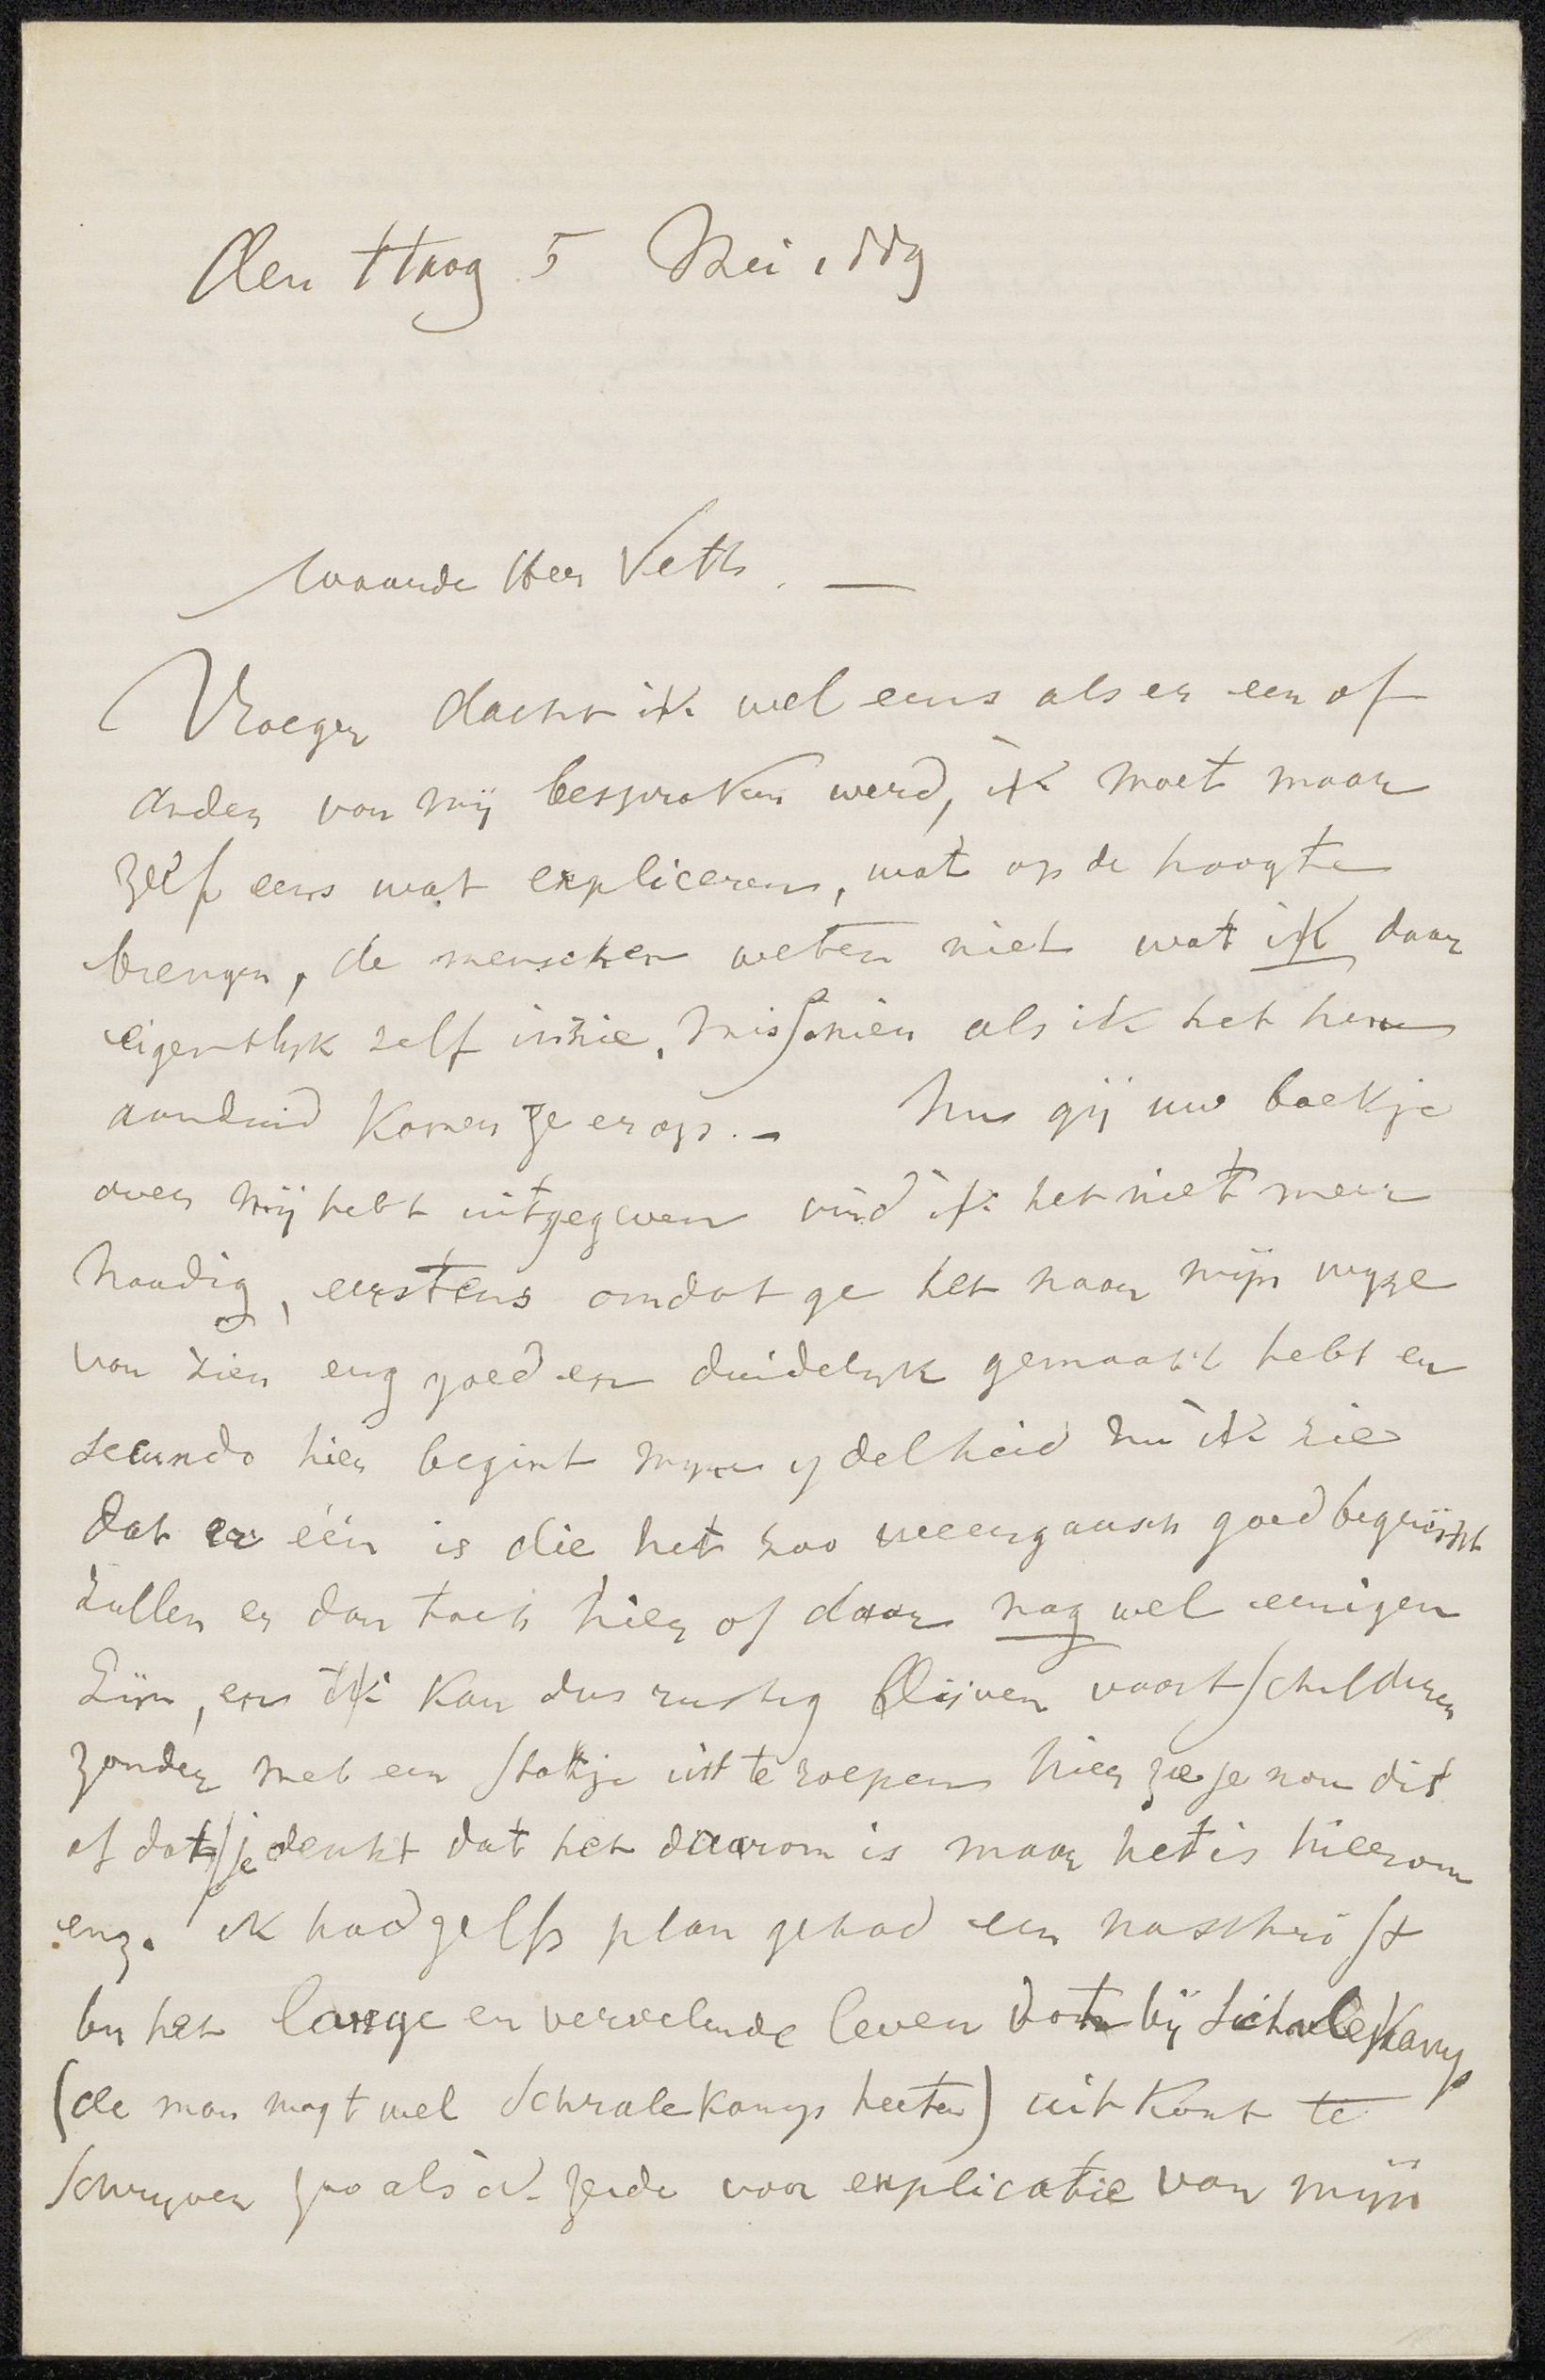 den Haag 5 Mei 1889
Waarde Heer Veth. —
Vroeger dacht ik wel eens als er een of
ander van mij besproken werd, ik moet maar
zelf eens wat expliceren, wat op de hoogte
brengen, de menschen weten niet wat ik daar
eigentlyk zelf in zie, misschien als ik het hen
aanduid komen ze er op. — Nu gij uw boekje
over mij hebt uitgegeven vind ik het niet meer
noodig, eerstens omdat ge het naar mijn wyze
van zien erg goed en duidelyk gemaakt hebt en
secundo hier begint myne ydelheid nu ik zie
dat er één is die het zoo weergaasch goed begrijpt
zullen er dan toch hier of daar nog wel eenigen
zijn, en ik kan dus rustig blijven voortschilderen
zonder met een stokje uit te roepen hier zie je nou dit
of dat, je denkt dat het daarom is maar het is hierom
enz. ik had zelfs plan gehad een naschrift
bij het lange en vervelende leven dat bij Schalekamp
(de man mogt wel Schralekamp heeten) uitkomt te
schryven zoo als ik zeide voor explicatie van mijn